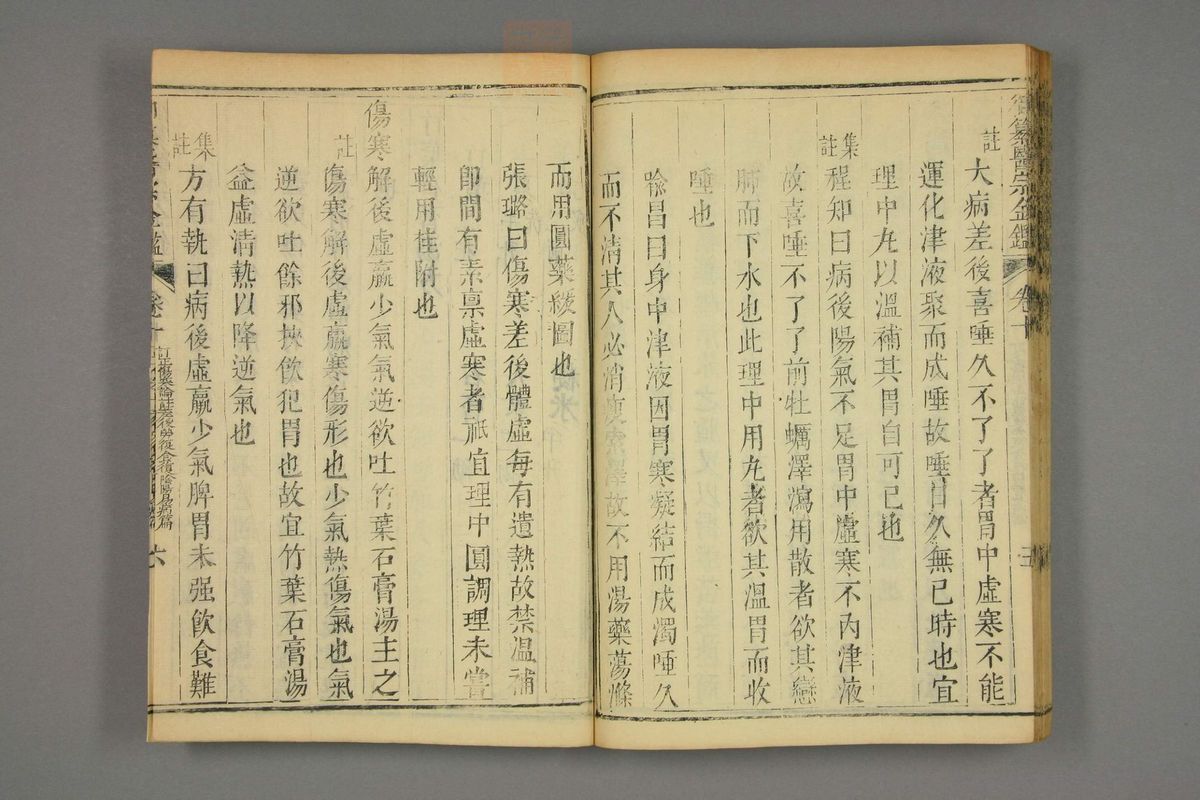 御纂醫宗金鑑 卷十 五
註 大病差後喜唾久不了了者胃中虛寒不能
運化津液聚而成唾故唾日久無已時也宜
理中丸以溫補其胃自可已也
集註 程知曰病後陽氣不足胃中虛寒不內津液
故喜唾不了了前牡蠣澤瀉用散者欲其戀
肺而下水也此理中用丸者欲其溫胃而收
唾也
喩昌曰身中津液因胃寒凝結而成濁唾久
而不清其人必消瘦索澤故不用湯藥蕩滌
而用圓藥緩圖也
張璐曰傷寒差後體虛每有遺熱故禁溫補
卽間有素禀虛寒者祇宜理中圓調理未嘗
輕用桂附也
傷寒解後虛羸少氣氣逆欲吐竹葉石膏湯主之
註 傷寒解後虛羸寒傷形也少氣熱傷氣也氣
逆欲吐餘邪挾飮犯胃也故宜竹葉石膏湯
益虛清熱以降逆氣也
集註 方有執曰病後虛羸少氣脾胃未强飮食難
卷十 訂正傷寒論註差後勞復食復陰陽易病篇 六